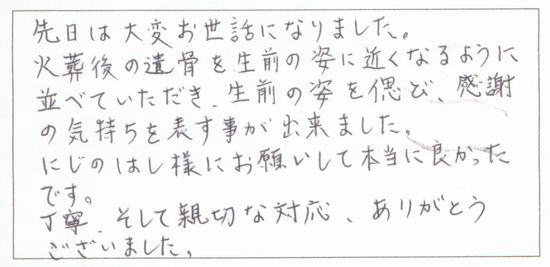 先日は大変お世話になりました。
火葬後の遺骨を生前の姿に近くなるように
並べていただき、生前の姿を偲び、感謝
の気持ちを表す事が出来ました。
にじのはし様にお願いして本当に良かった
です。
丁寧、そして親切な対応、ありがとう
ございました。